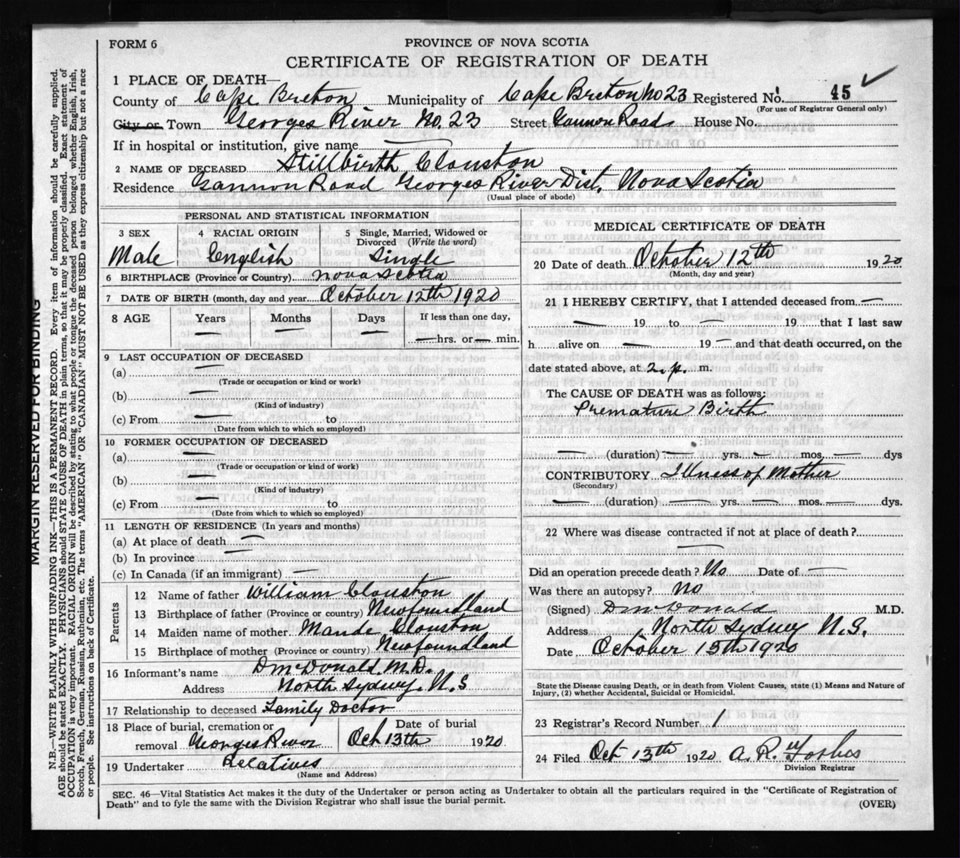 FORM 6
PROVINCE OF NOVA SCOTIA
CERTIFICATE OF REGISTRATION OF DEATH
1 PLACE OF DEATH—
County of Cape Breton Municipality of Cape Breton No 23 Registered No. 45
(For use of Registrar General only)
City or Town Georges River No. 23 Street Gannon Road House No.
If in hospital or institution, give name —
2 NAME OF DECEASED Stillbirth Clouston
Residence Gannon Road Georges River Dist, Nova Scotia
(Usual place of abode)
PERSONAL AND STATISTICAL INFORMATION
3 SEX
Male
4 RACIAL ORIGIN
English
5 Single, Married, Widowed or Divorced (Write the word)
Single
6 BIRTHPLACE (Province or Country) Nova Scotia
7 DATE OF BIRTH (month, day and year October 12th 1920
8 AGE Years Months Days If less than one day,
— — — —hrs. or — min.
9 LAST OCCUPATION OF DECEASED
(a) —
(Trade or occupation or kind or work)
(b) —
(Kind of industry)
(c) From — to
(Date from which to which so employed)
10 FORMER OCCUPATION OF DECEASED
(a) —
(Trade or occupation or kind of work)
(b) —
(Kind of industry)
(c) From — to
(Date from which to which so employed)
11 LENGTH OF RESIDENCE (In years and months)
(a) At place of death —
(b) In province —
(c) In Canada (if an immigrant) —
Parents
12 Name of father William Clouston
13 Birthplace of father (Province or country) Newfoundland
14 Maiden name of mother Maude Clouston
15 Birthplace of mother (Province or country) Newfoundland
16 Informant's name D McDonald M.D.
Address North Sydney N.S
17 Relationship to deceased Family Doctor
18 Place of burial, cremation or removal Georges River
Date of burial Oct 13th 1920
19 Undertaker Relatives
(Name and Address)
MEDICAL CERTIFICATE OF DEATH
20 Date of death October 12th 1920
(Month, day and year)
21 I HEREBY CERTIFY, that I attended deceased from —
— 19 — to — 19 — that I last saw
h alive on — 19 — and that death occurred, on the
date stated above, at 2.p. m.
The CAUSE OF DEATH was as follows:
Premature Birth
— (duration) — yrs. — mos. — dys
CONTRIBUTORY Illness of Mother
(Secondary)
— (duration) — yrs. — mos. — dys.
22 Where was disease contracted if not at place of death?
—
Did an operation precede death? No Date of —
Was there an autopsy? No
(Signed) D McDonald M.D.
Address North Sydney N.S.
Date October 15th 1920
State the Disease causing Death, or in death from Violent Causes, state (1) Means and Nature of
Injury, (2) whether Accidental, Suicidal or Homicidal.
23 Registrar's Record Number 1
24 Filed Oct 13th 1920 A. R. Forbes
Division Registrar
SEC. 46—Vital Statistics Act makes it the duty of the Undertaker or person acting as Undertaker to obtain all the particulars required in the "Certificate of Registration of
Death" and to fyle the same with the Division Registrar who shall issue the burial permit.
(OVER)
MARGIN RESERVED FOR BINDING
N.B.—WRITE PLAINLY WITH UNFADING INK—THIS IS A PERMANENT RECORD. Every item of information should be carefully supplied.
AGE should be stated EXACTLY. PHYSICIANS should STATE CAUSE OF DEATH in plain terms, so that it may be properly classified. Exact statement of
OCCUPATION is very important. RACIAL ORIGIN will be described by stating to what people or tongue the deceased person belonged whether English, Irish,
Scotch, French, German, Russian, Ruthenian, etc. The terms "AMERICAN" OR "CANADIAN" MUST NOT BE USED as they express citizenship but not a race
or people. See instructions on back of Certificate.